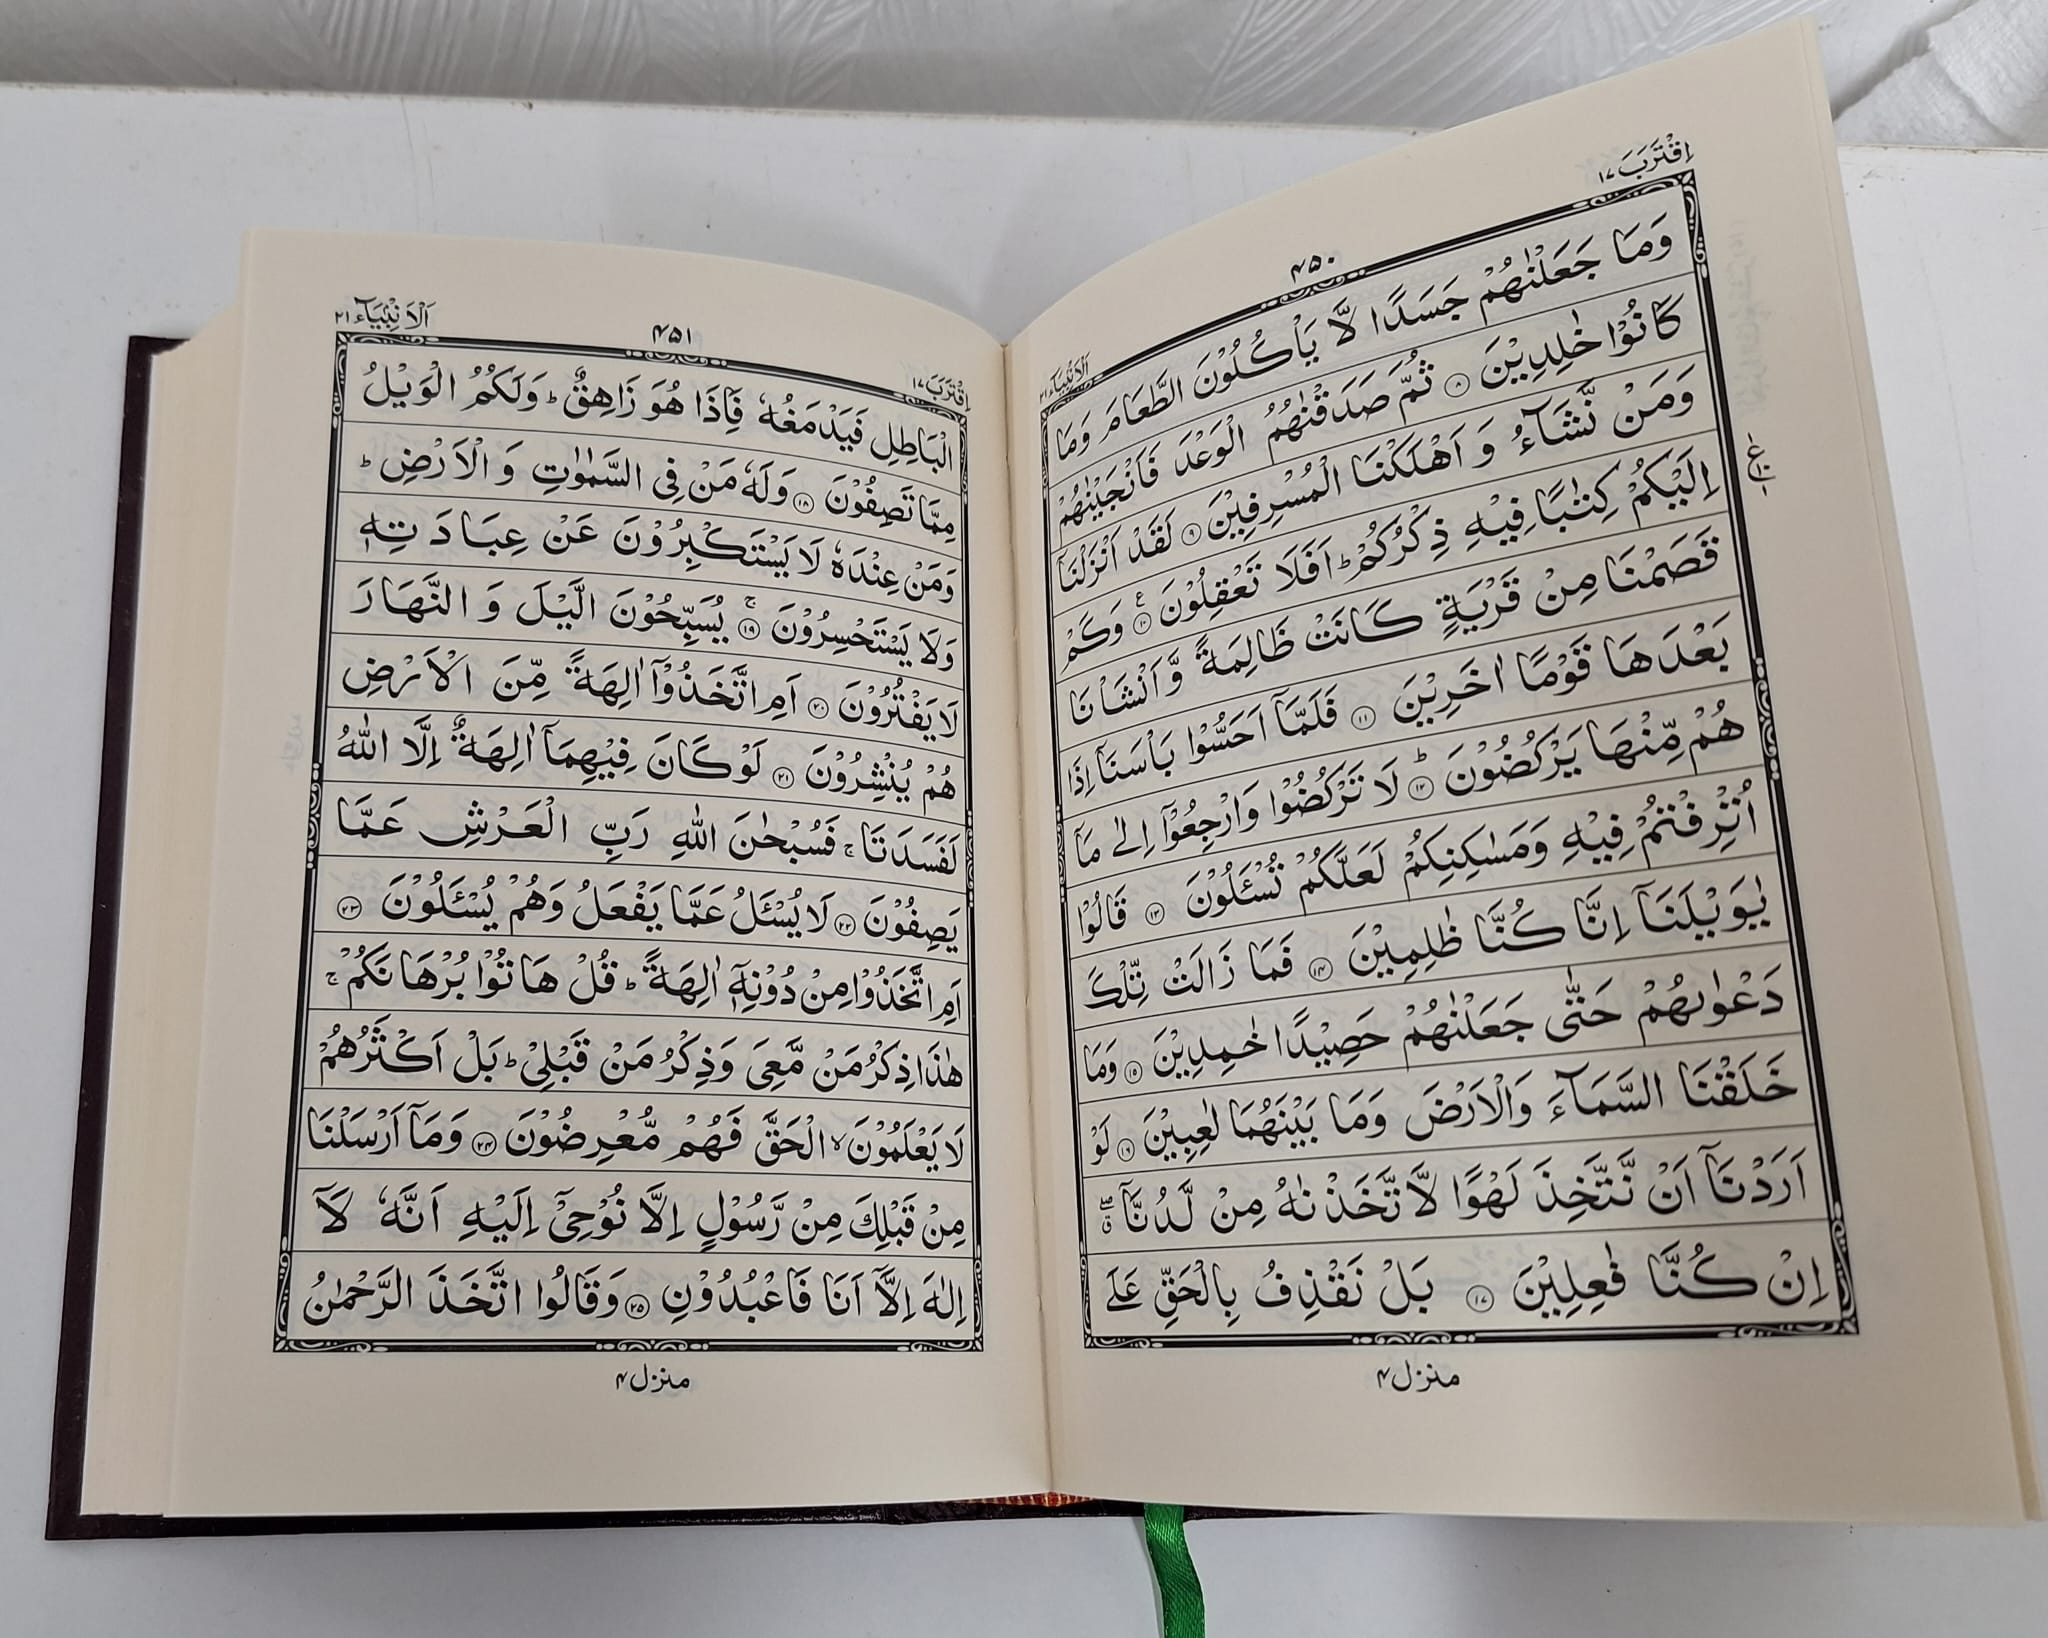 اِقْتَرَبَ ١٧
۴۵۰
اَلْاَنْۢبِيَآء ٢١
وَمَا جَعَلْنٰهُمْ جَسَدًا لَّا يَاْكُلُوْنَ الطَّعَامَ وَمَا
كَانُوْا خٰلِدِيْنَ ۝٨ ثُمَّ صَدَقْنٰهُمُ الْوَعْدَ فَاَنْجَيْنٰهُمْ
وَمَنْ نَّشَآءُ وَ اَهْلَكْنَا الْمُسْرِفِيْنَ ۝٩ لَقَدْ اَنْزَلْنَاۤ
اِلَيْكُمْ كِتٰبًا فِيْهِ ذِكْرُكُمْ ؕ اَفَلَا تَعْقِلُوْنَ ۝١٠ ع وَكَمْ
قَصَمْنَا مِنْ قَرْيَةٍ كَانَتْ ظَالِمَةً وَّ اَنْشَاْنَا
بَعْدَهَا قَوْمًا اٰخَرِيْنَ ۝١١ فَلَمَّاۤ اَحَسُّوْا بَاْسَنَاۤ اِذَا
هُمْ مِّنْهَا يَرْكُضُوْنَ ؕ ۝١٢ لَا تَرْكُضُوْا وَارْجِعُوْۤا اِلٰى مَاۤ
اُتْرِفْتُمْ فِيْهِ وَمَسٰكِنِكُمْ لَعَلَّكُمْ تُسْـَٔلُوْنَ ۝١٣ قَالُوْا
يٰوَيْلَنَاۤ اِنَّا كُنَّا ظٰلِمِيْنَ ۝١۴ فَمَا زَالَتْ تِّلْكَ
دَعْوٰىهُمْ حَتّٰى جَعَلْنٰهُمْ حَصِيْدًا خٰمِدِيْنَ ۝١۵ وَمَا
خَلَقْنَا السَّمَآءَ وَالْاَرْضَ وَمَا بَيْنَهُمَا لٰعِبِيْنَ ۝١٦ لَوْ
اَرَدْنَاۤ اَنْ نَّتَّخِذَ لَهْوًا لَّاتَّخَذْنٰهُ مِنْ لَّدُنَّاۤ ۖق
اِنْ كُنَّا فٰعِلِيْنَ ۝١٧ بَلْ نَقْذِفُ بِالْحَقِّ عَلَى
منزل ۴
اَلْاَنْۢبِيَآء ٢١
۴۵١
اِقْتَرَبَ ١٧
الْبَاطِلِ فَيَدْمَغُهٗ فَاِذَا هُوَ زَاهِقٌ ؕ وَلَكُمُ الْوَيْلُ
مِمَّا تَصِفُوْنَ ۝١٨ وَلَهٗ مَنْ فِى السَّمٰوٰتِ وَ الْاَرْضِ ؕ
وَمَنْ عِنْدَهٗ لَا يَسْتَكْبِرُوْنَ عَنْ عِبَادَتِهٖ
وَلَا يَسْتَحْسِرُوْنَ ۚ ۝١٩ يُسَبِّحُوْنَ الَّيْلَ وَ النَّهَارَ
لَا يَفْتُرُوْنَ ۝٢٠ اَمِ اتَّخَذُوْۤا اٰلِهَةً مِّنَ الْاَرْضِ
هُمْ يُنْشِرُوْنَ ۝٢١ لَوْ كَانَ فِيْهِمَاۤ اٰلِهَةٌ اِلَّا اللّٰهُ
لَفَسَدَتَا ۚ فَسُبْحٰنَ اللّٰهِ رَبِّ الْعَرْشِ عَمَّا
يَصِفُوْنَ ۝٢٢ لَا يُسْـَٔلُ عَمَّا يَفْعَلُ وَهُمْ يُسْـَٔلُوْنَ ۝٢٣
اَمِ اتَّخَذُوْا مِنْ دُوْنِهٖۤ اٰلِهَةً ؕ قُلْ هَاتُوْا بُرْهَانَكُمْ ۚ
هٰذَا ذِكْرُ مَنْ مَّعِىَ وَذِكْرُ مَنْ قَبْلِىْ ؕ بَلْ اَكْثَرُهُمْ
لَا يَعْلَمُوْنَ ۙ الْحَقَّ فَهُمْ مُّعْرِضُوْنَ ۝٢۴ وَمَاۤ اَرْسَلْنَا
مِنْ قَبْلِكَ مِنْ رَّسُوْلٍ اِلَّا نُوْحِىْۤ اِلَيْهِ اَنَّهٗ لَاۤ
اِلٰهَ اِلَّاۤ اَنَا فَاعْبُدُوْنِ ۝٢۵ وَقَالُوا اتَّخَذَ الرَّحْمٰنُ
منزل ۴